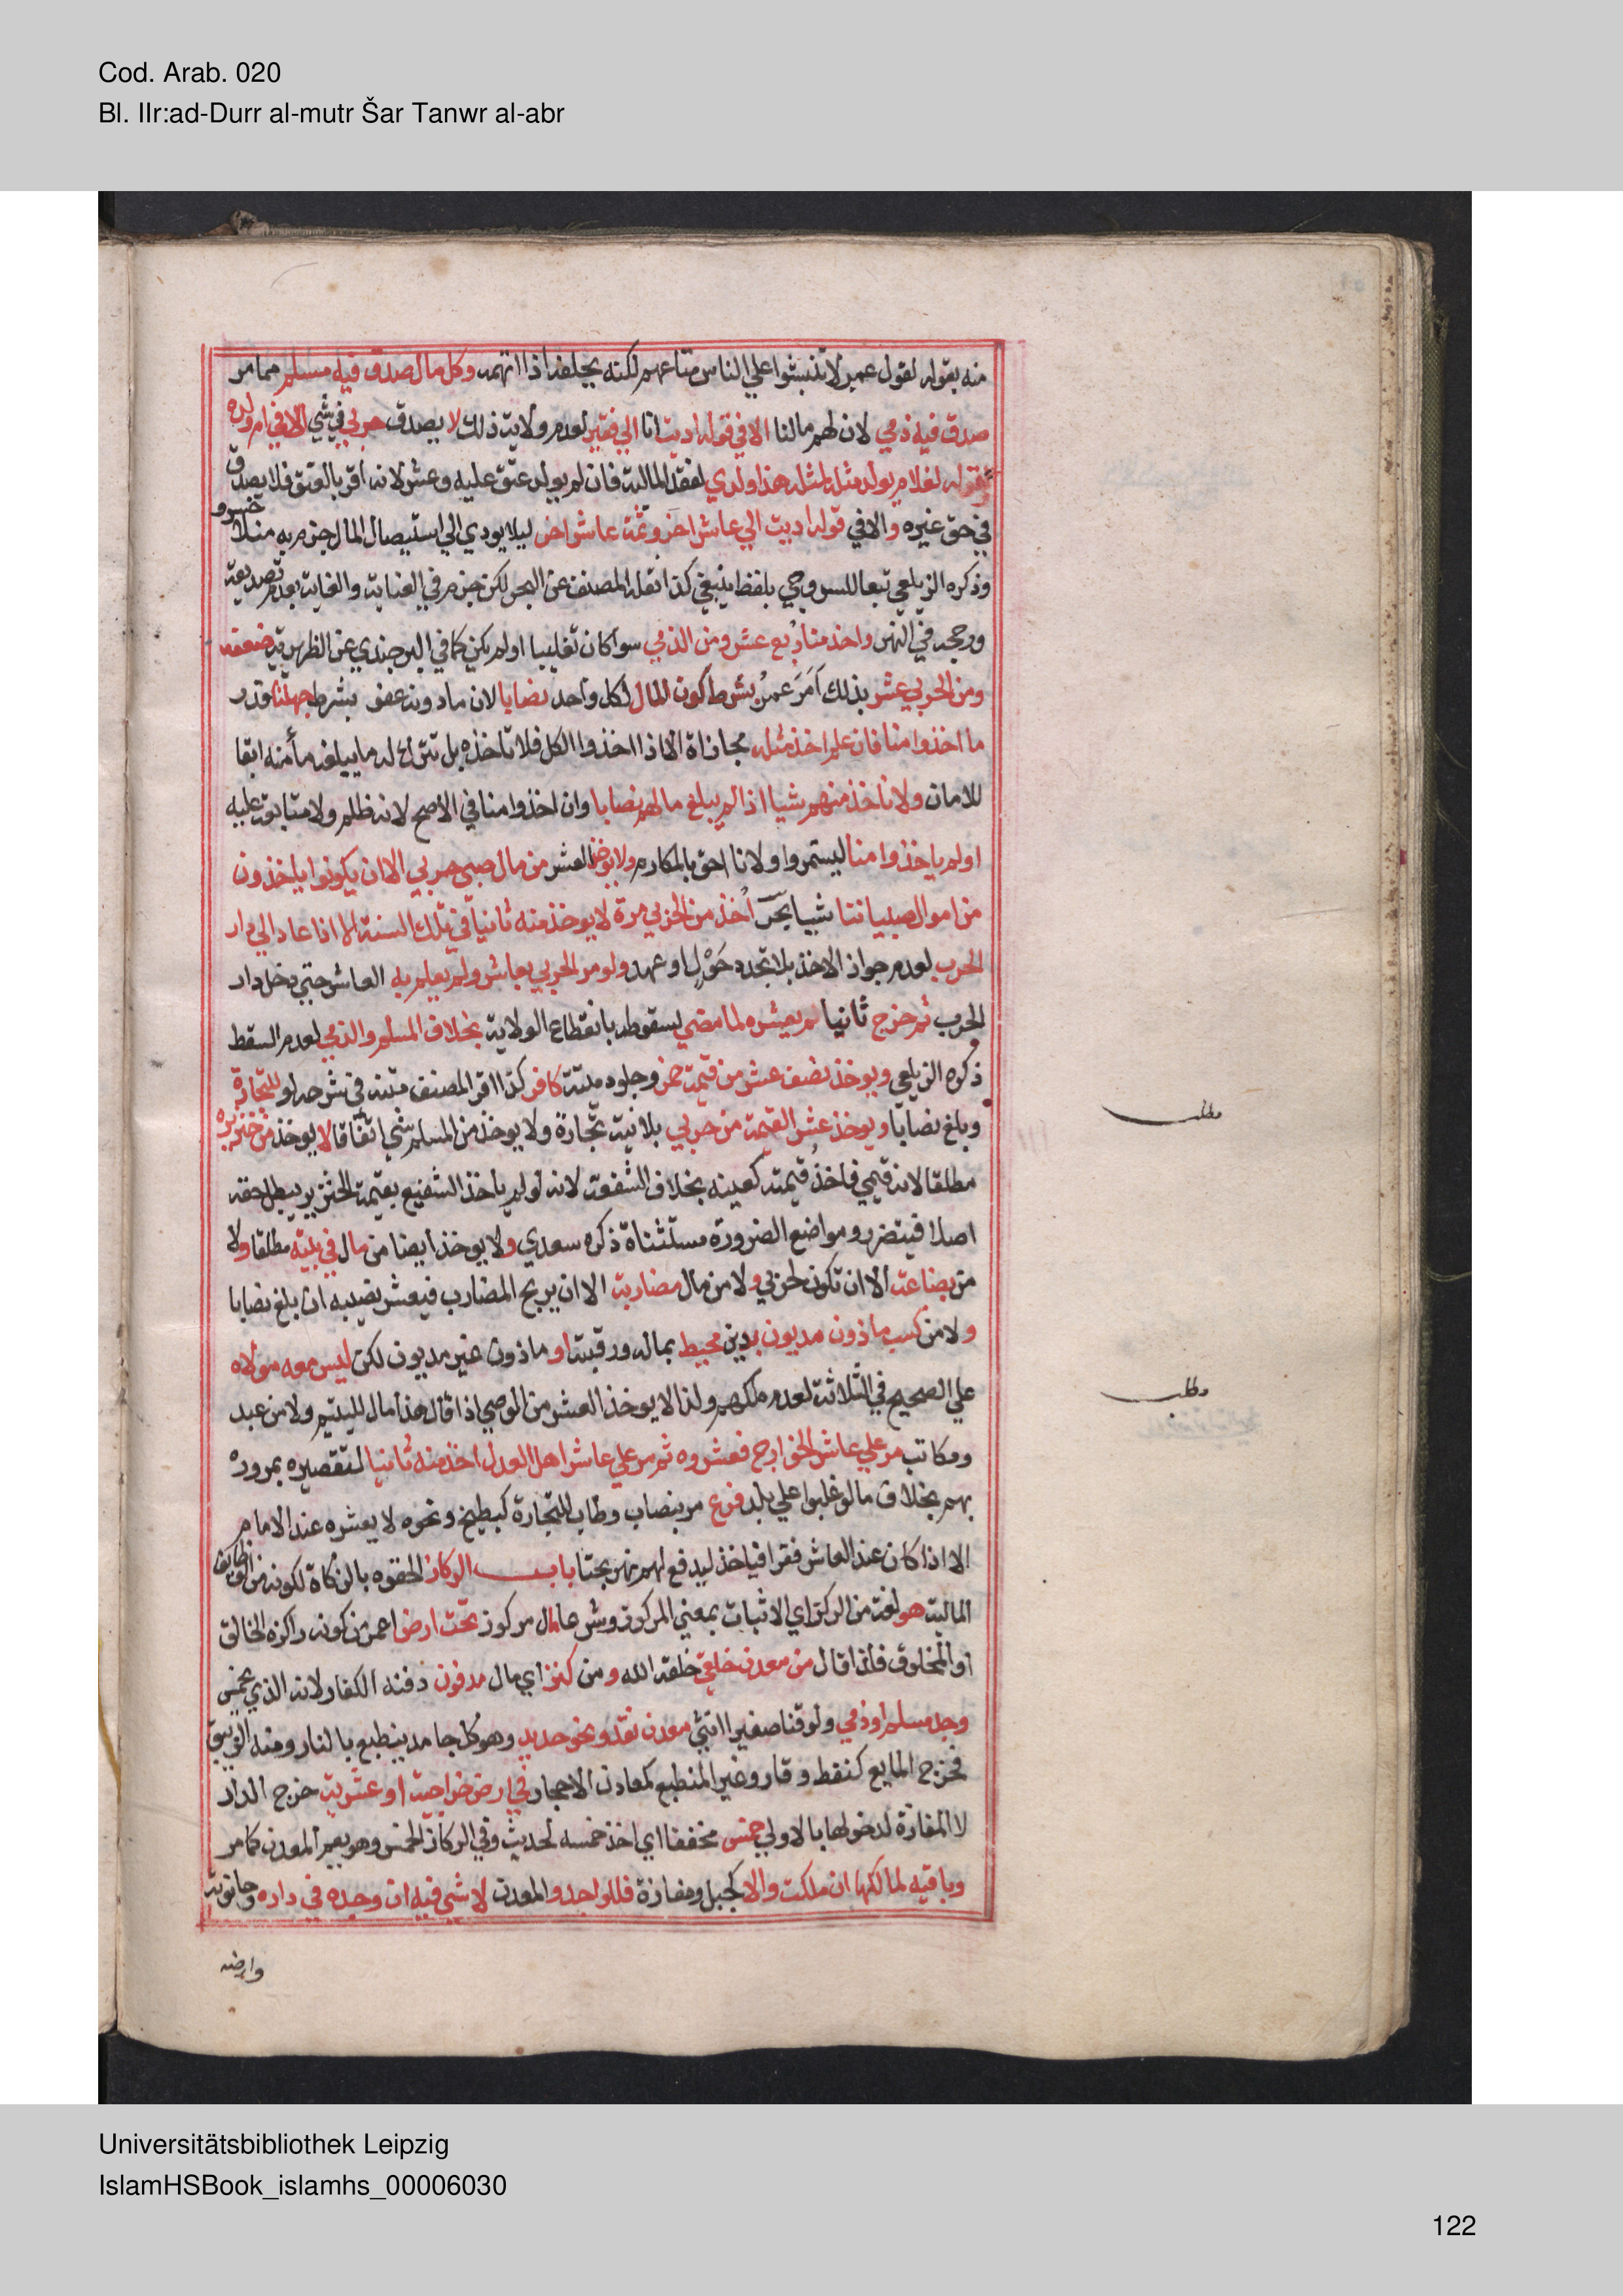 Cod. Arab. 020
Bl. IIr:ad-Durr al-mutr Šar Tanwr al-abr
منه بقوله لقول عمر لا تنبشوا علي الناس متاعهم لكنه يحلفه اذا اتهمه وكل مال صدق فيه مسلم مما مر
صدق فيه ذمي لان لهم ما لنا الا في قوله اديت انا الي فقير لعدم ولاية ذلك لا يصدق حربي في شي الا في ام ولده
وقوله لغلام يولد مثله لمثله هذا ولدي لفقد المالية فان لم يولد عتق عليه وعشر لانه اقر بالعتق فلا يصدق
في حق غيره والا في قوله اديت الي عاشر اخر وثمة عاشر اخر ليلا يودي الي استيصال المال جزم به منلا خسرو
وذكره الزيلعي تبعا للسروجي بلفظ ينبغي كذا نقله المصنف عن البحر لكن جزم في العناية والغاية بعدم تصديقه
ورجحه في النهر واخذ منا ربع عشر ومن الذمي سوا كان تغلبيا اولم يكن كما في البرجندي عن الظهيرية ضعفه
ومن الحربي عشر بذلك اَمَرَ عمرُ بشرط كون المال لكل واحد نصابا لان ما دونه عفو بشرط جهلنا قدر
ما اخذوا منا فان علم اخذ مثله مجازاة الا اذا اخذوا الكل فلا ناخذه بل نترك له ما يبلغه مأمنه ابقا
للامان ولا ناخذ منهم شيا اذا لم يبلغ مالهم نصابا وان اخذوا منا في الأصح لانه ظلم ولا متابعة عليه
اولم ياخذوا منا ليستمروا ولانا احق بالمكارم ولا يوخذ العشر من مال صبي حربي الا ان يكونوا ياخذون
من اموال صبياننا شيا بحر اُخذ من الحربي مرة لا يوخذ منه ثانيا في تلك السنة الا اذا عاد الي دار
الحرب لعدم جواز الاخذ بلا تجدد حَوْلٍ او عهد ولو مر الحربي بعاشر ولم يعلم به العاشر حتي دخل دار
الحرب ثم خرج ثانيا لم يعشره لما مضي لسقوطه بانقطاع الولاية بخلاف المسلم والذمي لعدم المسقط
ذكره الزيلعي ويوخذ نصف عشر من قيمة خمر وجلود ميتة كافر كذا اقر المصنف متنه في شرحه لو للتجارة
وبلغ نصابا ويوخذ عشر القيمة من حربي بلا نية تجارة ولا يوخذ من المسلم شي اتفاقا لا يوخذ من خنزيره
مطلقا لانه قيمي فاخذُ قيمته كعينه بخلاف الشفعة لانه لو لم ياخذ الشفيع بقيمة الخنزير يبطل حقه
اصلا فيتضرر ومواضع الضرورة مستثناة ذكره سعدي ولا يوخذ ايضا من مال في بيته مطلقا ولا
من بضاعة الا ان تكون لحربي ولا من مال مضاربة الا ان يربح المضارب فيعشر نصيبه ان بلغ نصابا
ولا من كسب ماذون مديون بدين محيط بماله ورقبته او ماذون غير مديون لكن ليس معه مولاه
علي الصحيح في الثلاثة لعدم ملكهم ولذا لا يوخذ العشر من الوصي اذا قال هذا مال لليتيم ولا من عبد
ومكاتب مر علي عاشر الخوارج فعشروه ثم مر علي عاشر اهل العدل اخذ منه ثانيا لتقصيره بمروره
بهم بخلاف ما لو غلبوا علي بلد فرع مر بنصاب رطاب للتجارة كبطيخ ونحوه لا يعشره عند الامام
الا اذا كان عند العاشر فقرا فياخذ ليدفع لهم نهر بحثا باب الركاز الحقوه بالزكاة لكونه من الوظايف
المالية هو لغة من الركز اي الاثبات بمعني المركوز وشرعا مال مركوز تحت ارض اعم من كون راكزه الخالق
او المخلوق فلذا قال من معدن خلقي خلقه الله ومن كنز اي مال مدفون دفنه الكفار لانه الذي يخمس
وجد مسلم او ذمي ولو قنا صغيرا انثي معدن نقد ونحو حديد وهو كل جامد ينطبع بالنار ومنه الزيبق
فخرج المايع كنفط وقار وغير المنطبع كمعادن الاحجار في ارض خراجية او عشرية خرج الدار
لا المفازة لدخولها بالاولي خمس مخففا اي اخذ خمسه لحديث وفي الركاز الخمس وهو يعم المعدن كما مر
وباقيه لمالكها ان ملكت والا كجبل ومفازة فللواجد والمعدن لا شي فيه ان وجده في داره وحانوته
وارضه
مطلب
مطلب
Universitätsbibliothek Leipzig
IslamHSBook_islamhs_00006030
122